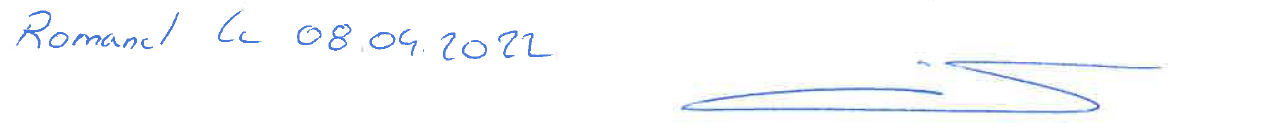 Romanel le 08.04.2022